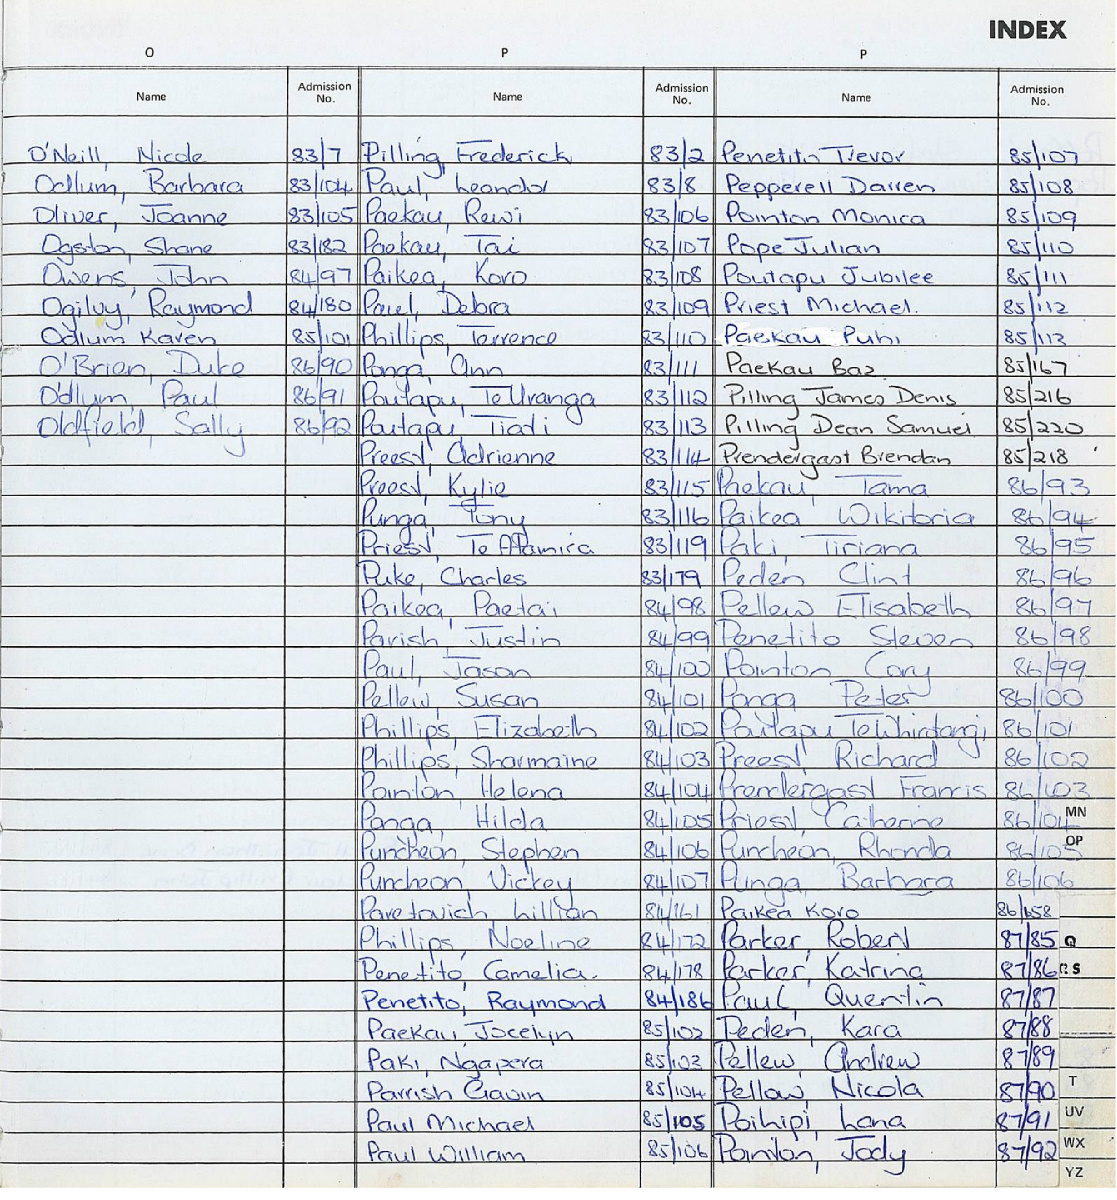 INDEX
O P P
Name Admission No. Name Admission No. Name Admission No.
O'Neill, Nicole 83/7 Pilling Frederick 83/2 Penetito Trevor 85/107
Odlum, Barbara 83/104 Paul, Leandor 83/8 Pepperell Darren 85/108
Oliver, Joanne 83/105 Paekau, Rewi 83/106 Pointon Monica 85/109
Ogston, Shane 83/182 Paekau, Tai 83/107 Pope Julian 85/110
Owens, John 84/97 Paikea, Koro 83/108 Poutapu Jubilee 85/111
Ogilvy, Raymond 84/180 Debra 83/109 Priest Michael. 85/112
Odlum Karen 85/101 Phillips, Terrence 83/110 Paekau Puhi 85/113
O'Brien, Duke 86/90 Panga, Ann 83/111 Paekau Baz 85/167
Odlum, Paul 86/91 Poutapu, Te Uranga 83/112 Pilling James Denis 85/216
Oldfield, Sally 86/92 Poutapu, Tiati 83/113 Pilling Dean Samuel 85/220
Preest, Adrienne 83/114 Prendergast Brendan 85/218
Preest, Kylie 83/115 Paekau, Tama 86/93
Punga, Tony 83/116 Paikea Wikitoria 86/94
Priest, Te 83/119 Paki, Tiriana 86/95
Puke, Charles 83/179 Peden Clint 86/96
Paikea, Paetai 84/98 Pellew Elisabeth 86/97
Parish, Justin 84/99 Penetito Steven 86/98
Paul, Jason 84/100 Pointon Cory 86/99
Pellew, Susan 84/101 Panga Peter 86/100
Phillips, Elizabeth 84/102 Poutapu 86/101
Phillips, Sharmaine 84/103 Preest, Richard 86/102
Pointon, Helena 84/104 Prendergast Francis 86/103
Panga, Hilda 84/105 Priest, Catherine 86/104 MN
Puncheon, Stephen 84/106 Puncheon, Rhonda 86/105 OP
Puncheon, Vickey 84/107 Punga, Barbara 86/106
Paretovich, Lillian 84/161 Paikea Koro 86/658
Phillips, Noeline 84/172 Parker, Robert 87/85 Q
Penetito, Camelia. 84/178 Parker, Katrina 87/86 RS
Penetito, Raymond 84/186 Paul, Quentin 87/87
Paekau, Jocelyn 85/102 Peden, Kara 87/88
Paki, Ngapera 85/103 Pellew, Andrew 87/89
Parrish Gavin 85/104 Pellow, Nicola 87/90 T
Paul Michael 85/105 Poihipi, Lana 87/91 UV
Paul William 85/106 Pointon, Jody 87/92 WX
YZ